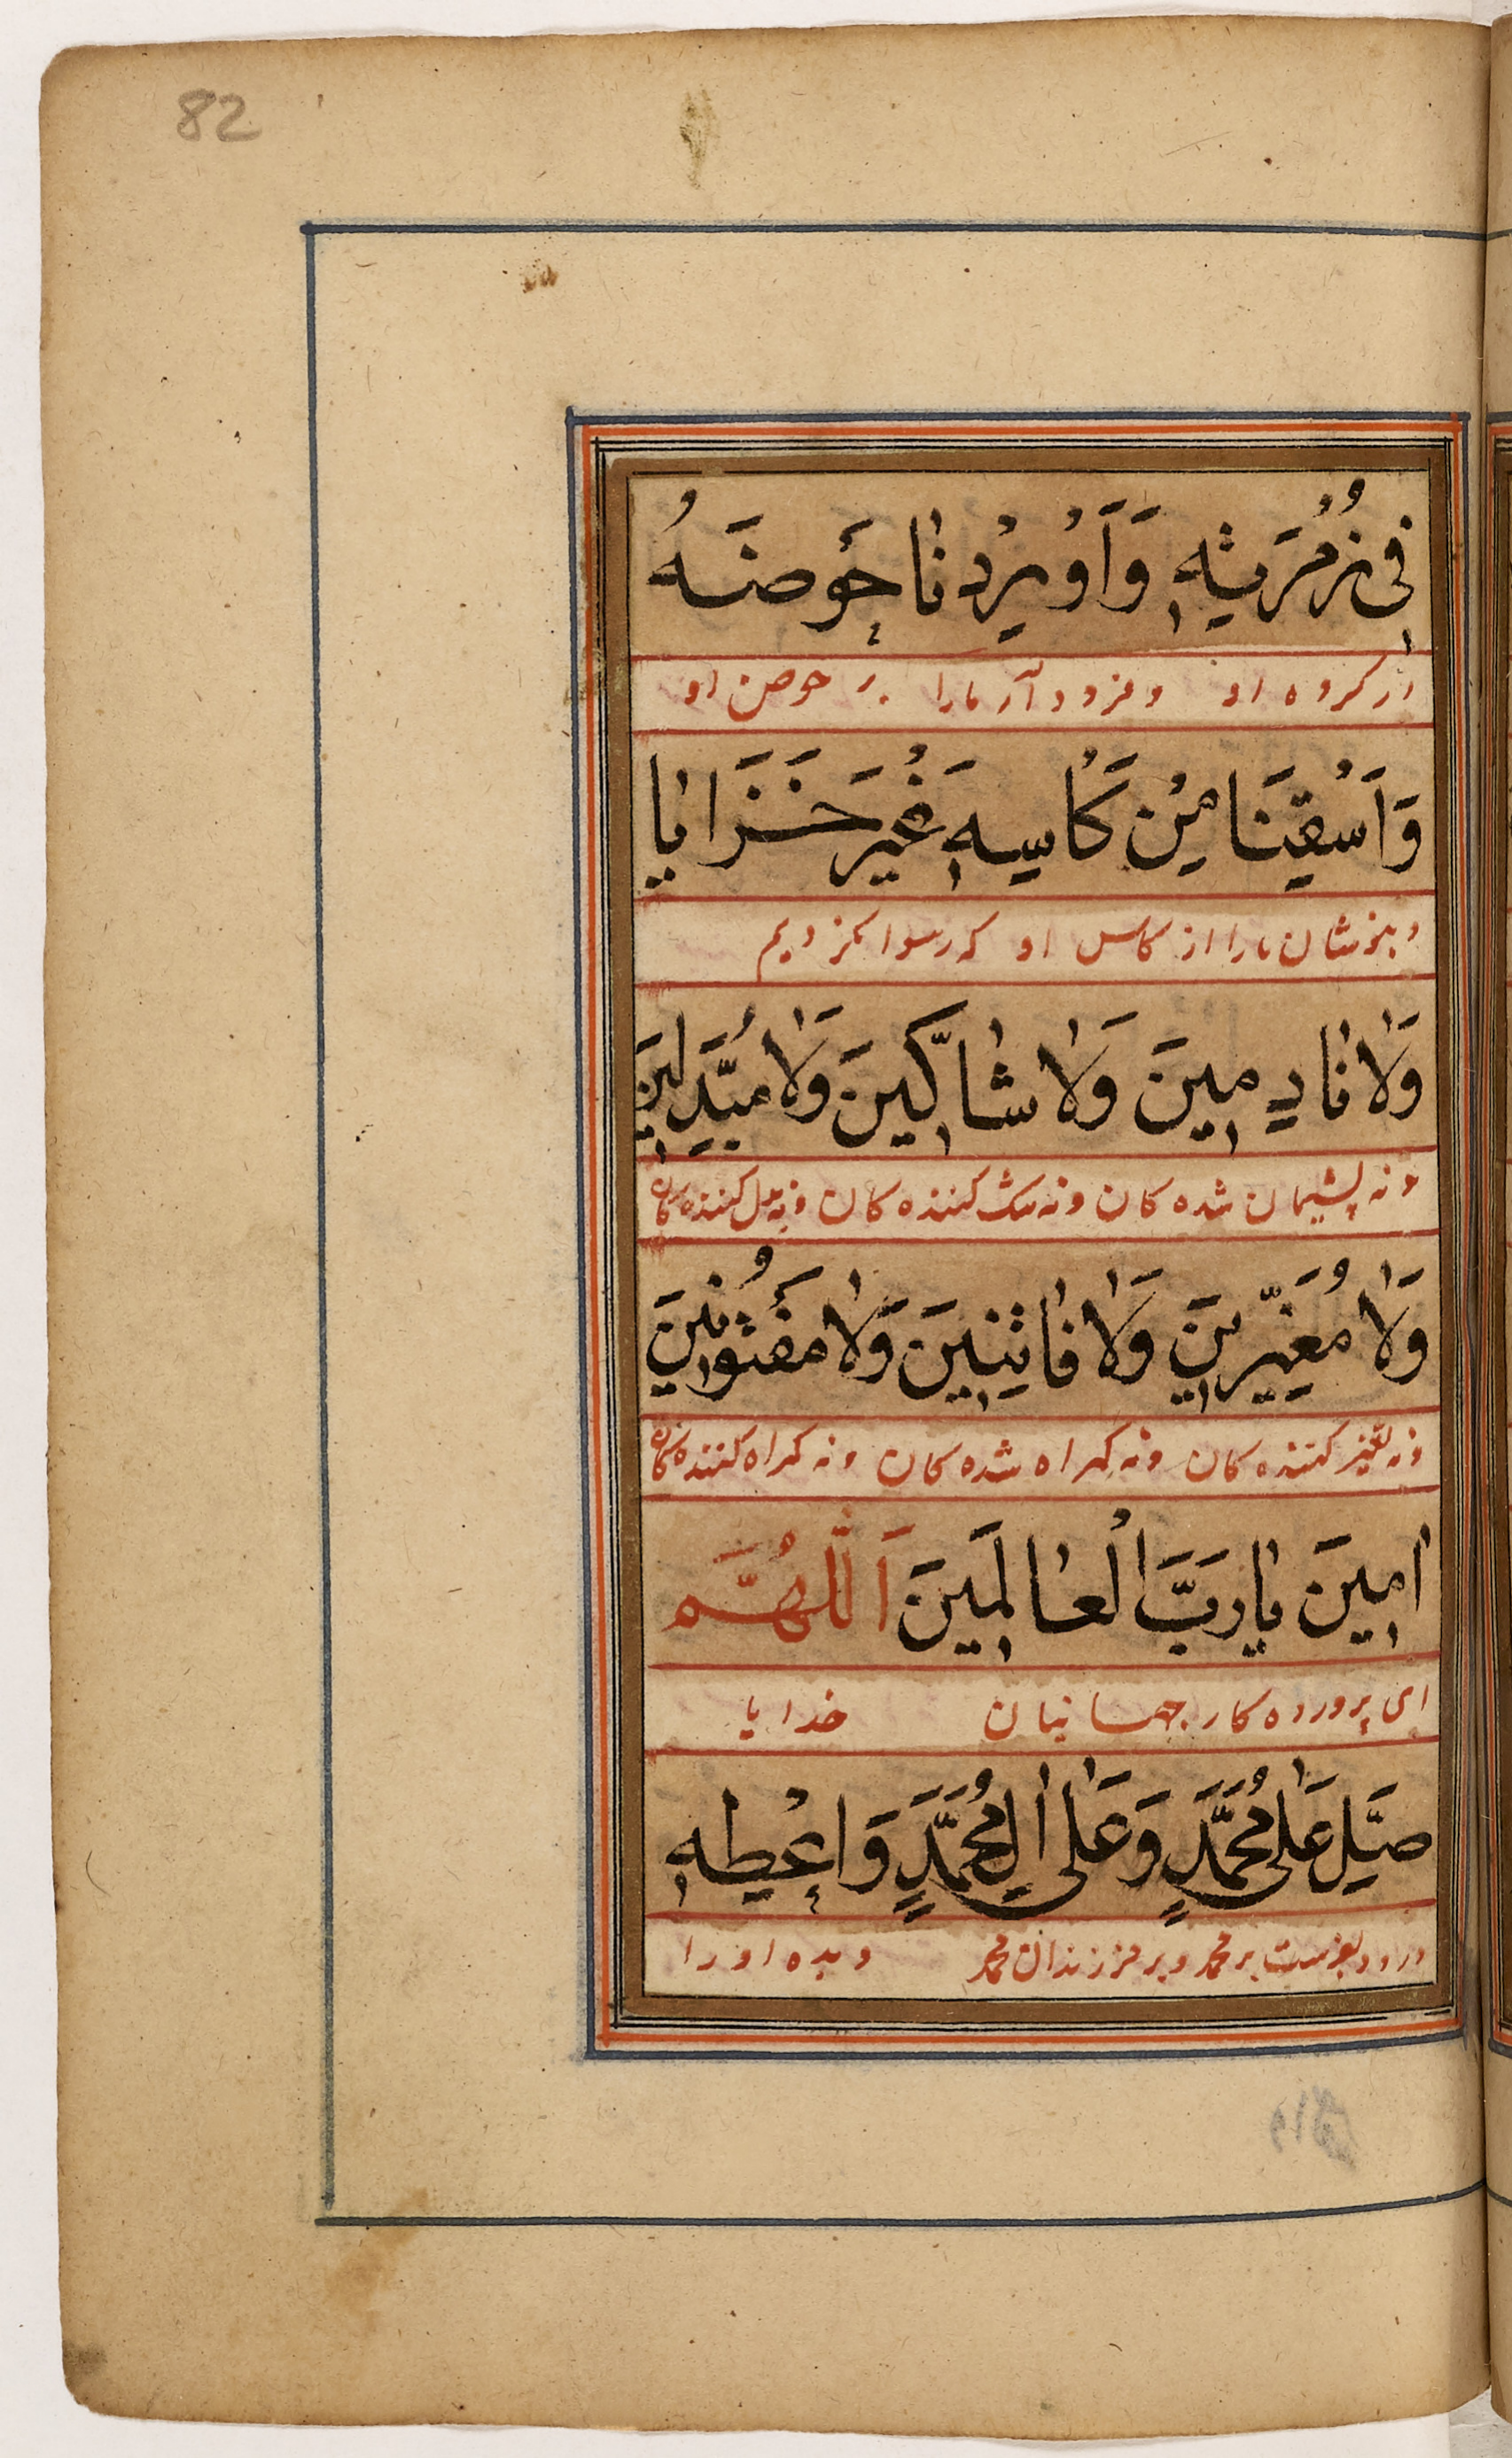 82
فِی زُمْرَتِهِ وَاَوْرِدْنَا حَوْضَهُ
از کروه او وفرود آر مارا بر حوض او
وَاَسْقِنَا مِنْ کَاْسِهِ غَیْرَ خَزَایَا
و بنوشان مارا از کاس او که رسوا نکردیم
وَلَا نَادِمِینَ وَلَا شَاکِّینَ وَلَا مُبَدِّلِینَ
و نه پشیمان شده کان و نه شک کننده کان و نه بدل کننده کان
وَلَا مُغَیِّرِینَ وَلَا فَاتِنِینَ وَلَا مَفْتُونِینَ
و نه تغیر کننده کان و نه کمراه شده کان و نه کمراه کننده کان
اٰمِینَ یَا رَبَّ الْعَالَمِینَ اَللّٰهُمَّ
ای پرورده کار جهانیان خدایا
صَلِّ عَلٰی مُحَمَّدٍ وَعَلٰی اٰلِ مُحَمَّدٍ وَاَعْطِهِ
درود بفرست بر محمد و بر فرزندان محمد و بده او را